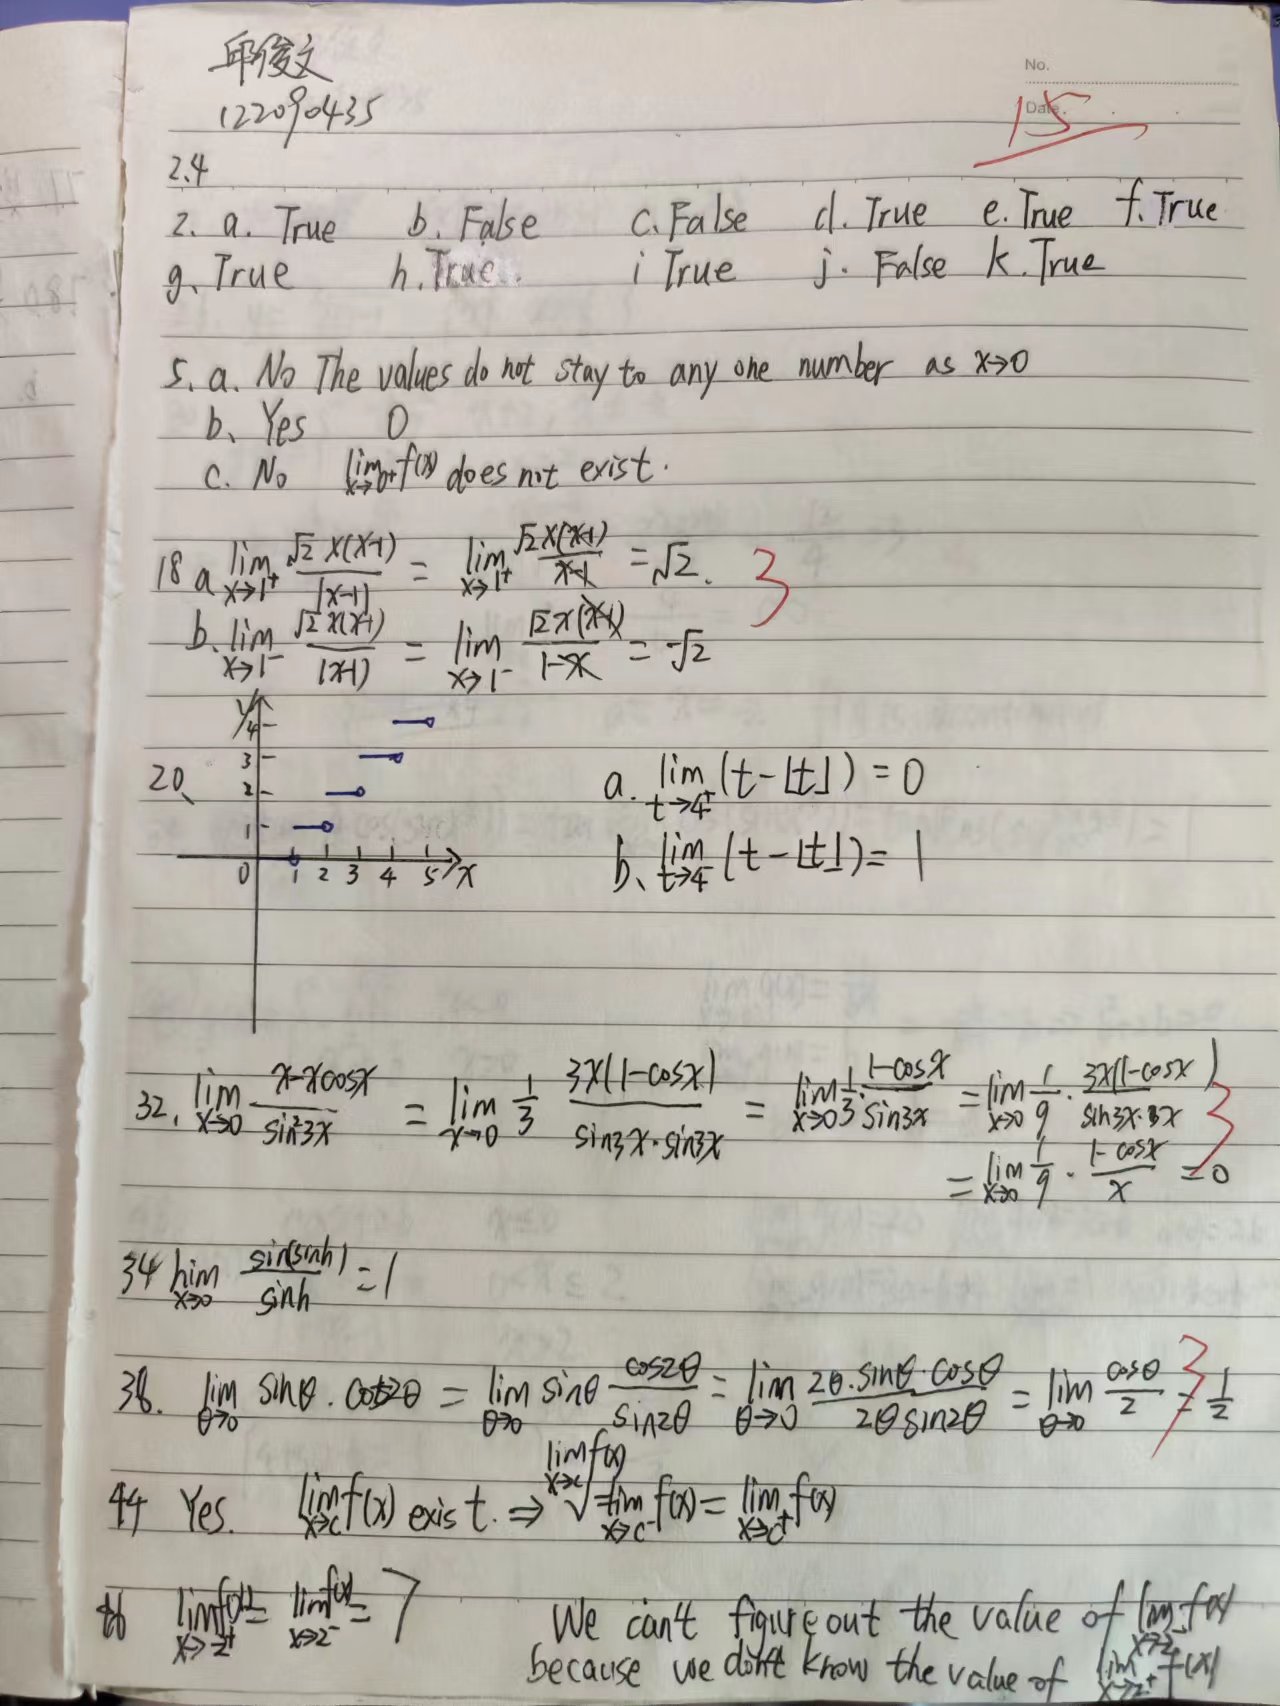 邱俊文
No.
122090435
Date.
15
2.4
2. a. True b. False c. False d. True e. True f. True
g. True h. True. i True j. False k. True
5. a. No The values do not stay to any one number as x→0
b、Yes 0
c. No lim x→0+ f(x) does not exist.
18 a lim x→1+ √2 x(x-1) / |x-1| = lim x→1+ √2 x(x-1) / x-1 = √2. 3
b. lim x→1- √2 x(x-1) / |x-1| = lim x→1- √2 x(x-1) / 1-x = -√2
20、 y 4 3 2 1 0 1 2 3 4 5 x
a. lim t→4+ (t-⌊t⌋) = 0
b、lim t→4- (t-⌊t⌋) = 1
32. lim x→0 x-xcosx / sin²3x = lim x→0 1/3 3x(1-cosx) / sin3x·sin3x = lim x→0 1/3 · 1-cosx / sin3x = lim x→0 1/9 · 3x(1-cosx) / sin3x·3x 3
= lim x→0 1/9 · 1-cosx / x = 0
34 lim x→0 sin(sinh) / sinh = 1
38. lim θ→0 sinθ · cot2θ = lim θ→0 sinθ cos2θ / sin2θ = lim θ→0 2θ·sinθ·cosθ / 2θ sin2θ = lim θ→0 cosθ / 2 = 1/2 3
44 Yes. lim x→c f(x) exist. ⇒ lim x→c f(x) √ lim x→c- f(x) = lim x→c+ f(x)
46 lim x→-2+ f(x) = lim x→2- f(x) = 7 We can't figure out the value of lim x→-2- f(x)
because we don't know the value of lim x→2+ f(x)